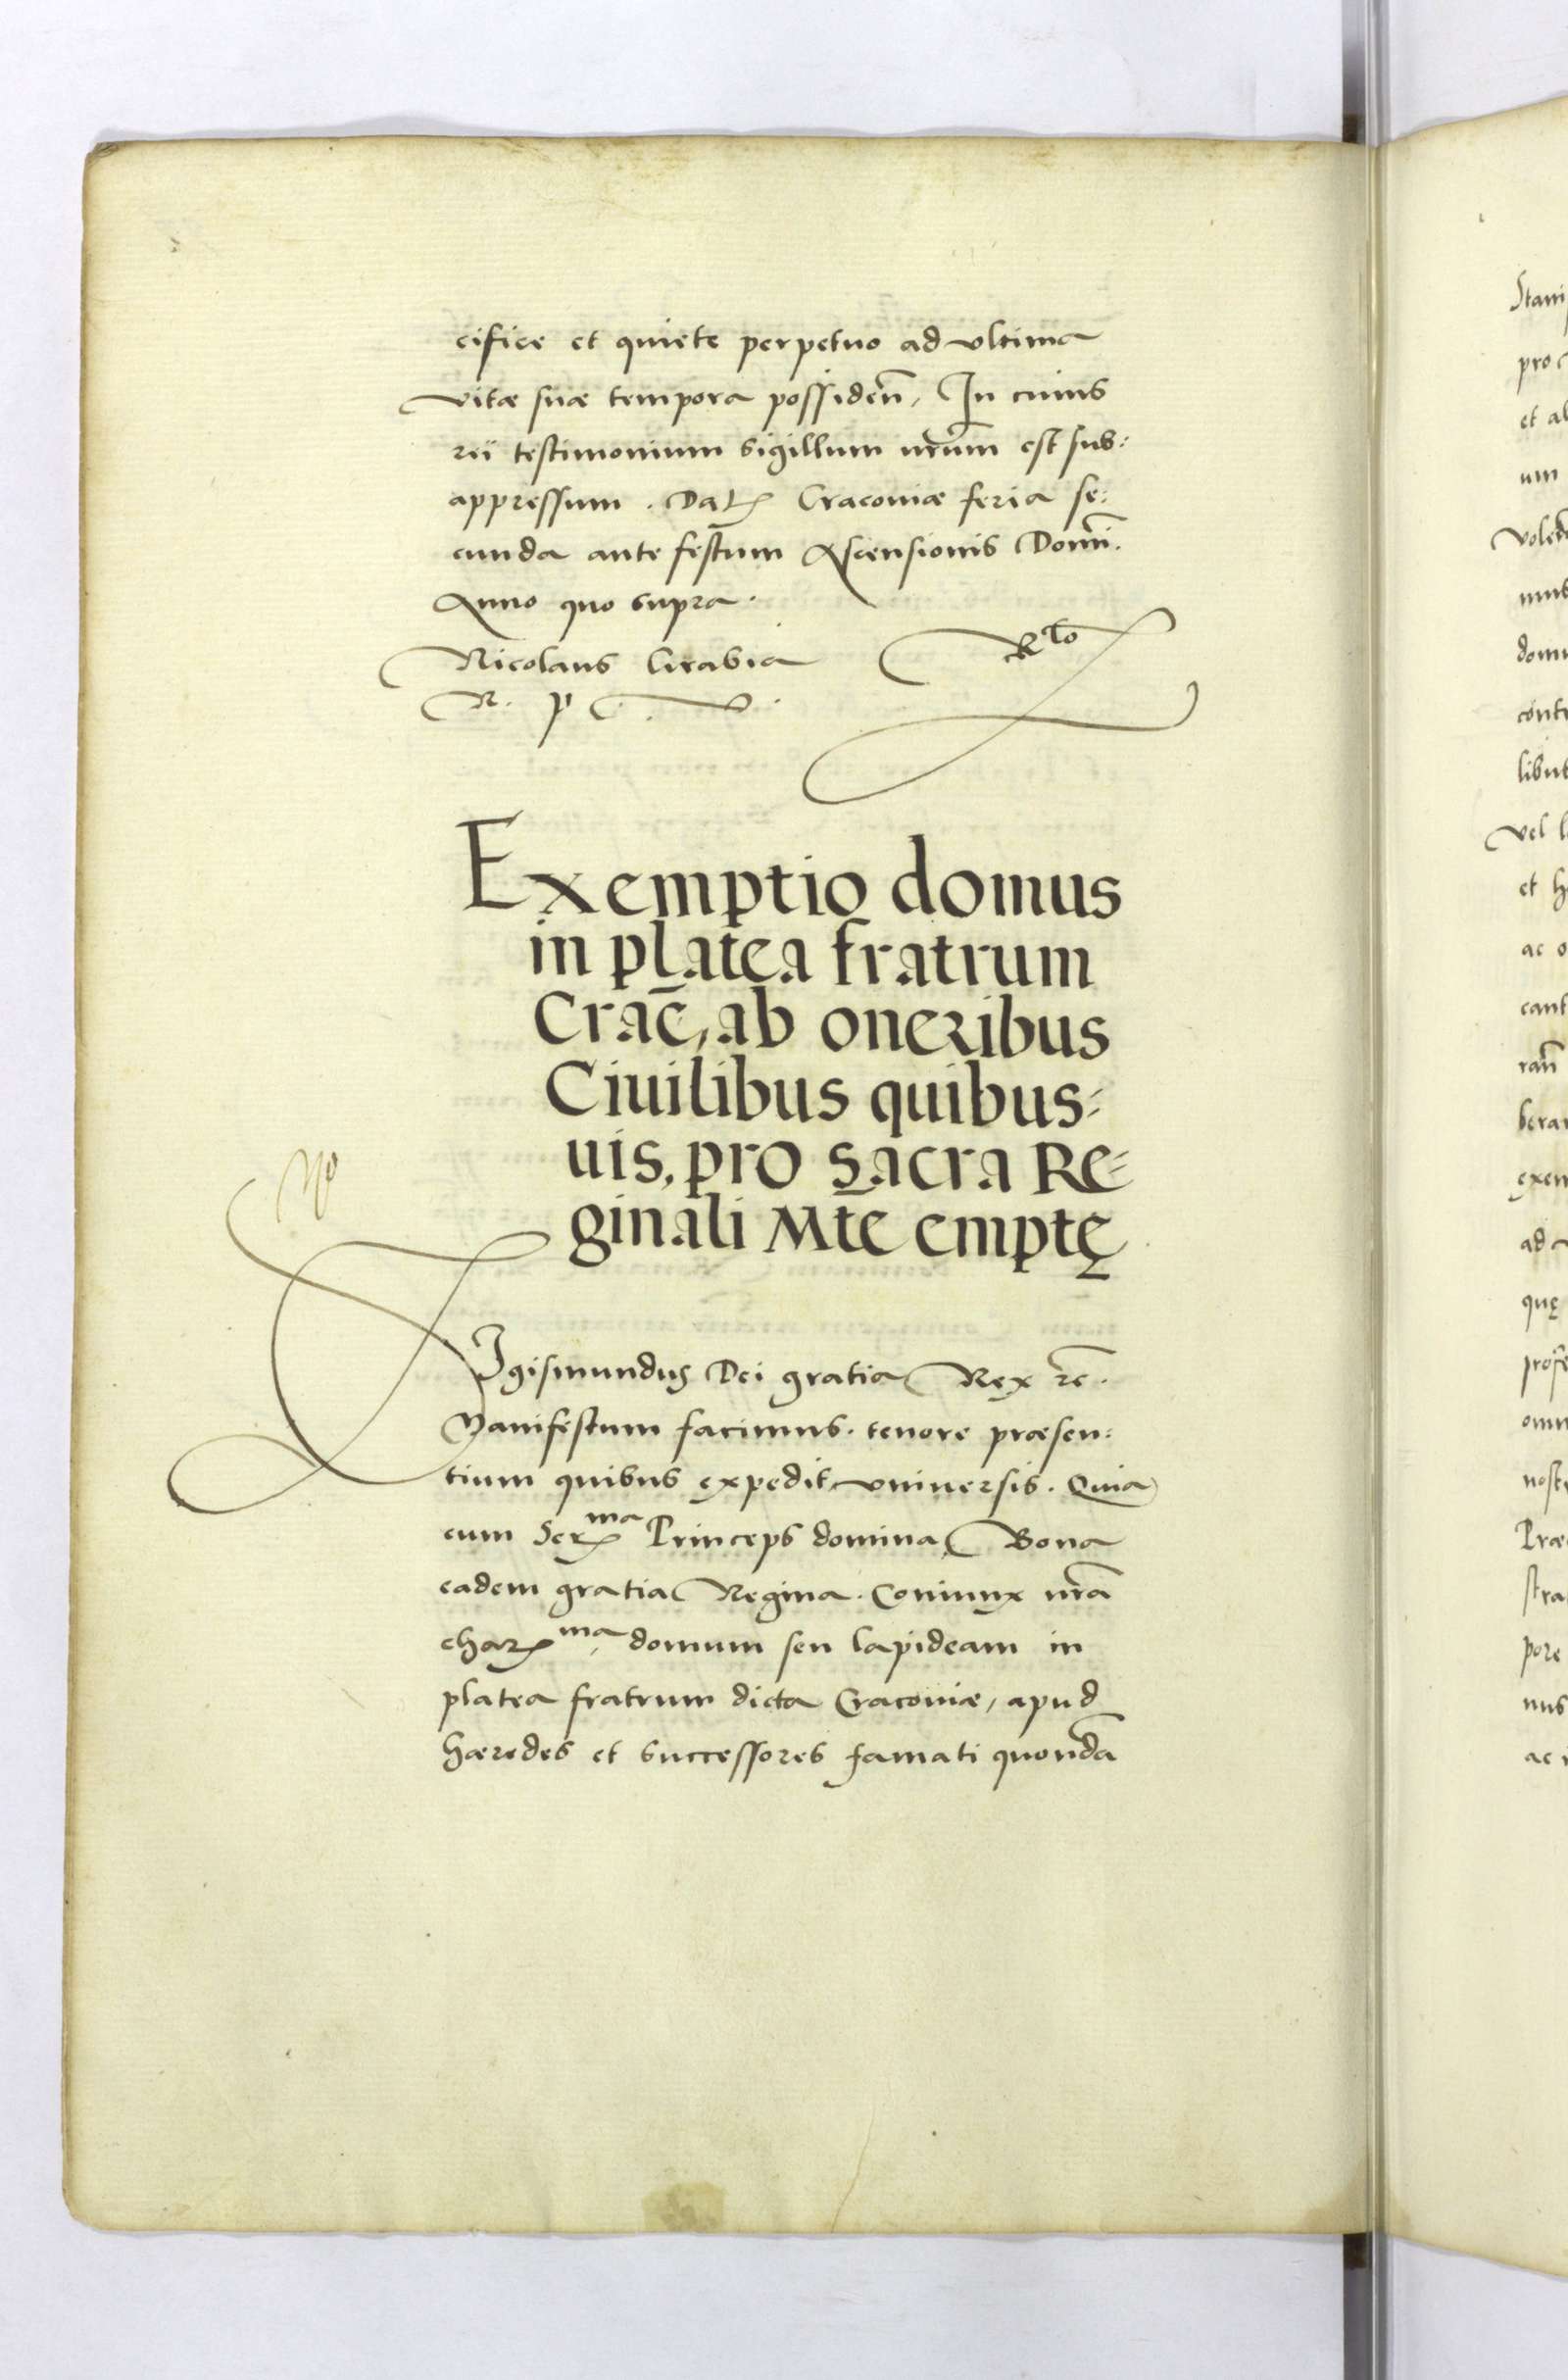 cifice et quiete perpetuo ad vltima
vitæ suæ tempora possiden̄, In cuius
rei testimonium sigillum nr̄um est sub:
appressum. Dat Cracouiæ feria se:
cunda ante festum Ascensionis Domi.
Anno quo supra.
Nicolaus Grabia Rto
R. p
Exemptio domus
in platea fratrum
Crac̄, ab oneribus
Ciuilibus quibus:
uis, pro sacra Re:
ginali Mte emptę
Sigismundus Dei gratia Rex rc̄.
Manifestum facimus. tenore præsen:
tium quibus expedit vniuersis. Quia
cum Ser ma Princeps domina Bona
eadem gratia Regina. Coniunx nr̄a
char ma, domum seu lapideam in
platea fratrum dicta Cracouiæ, apud
hæredes et successores famati quondā
Stani
pro
et al
um
dom
libus
vel l
et h
ac o
cant
ran̄
berar
exem
ad
quę
omn
nost
Præ
stra
pore
nus